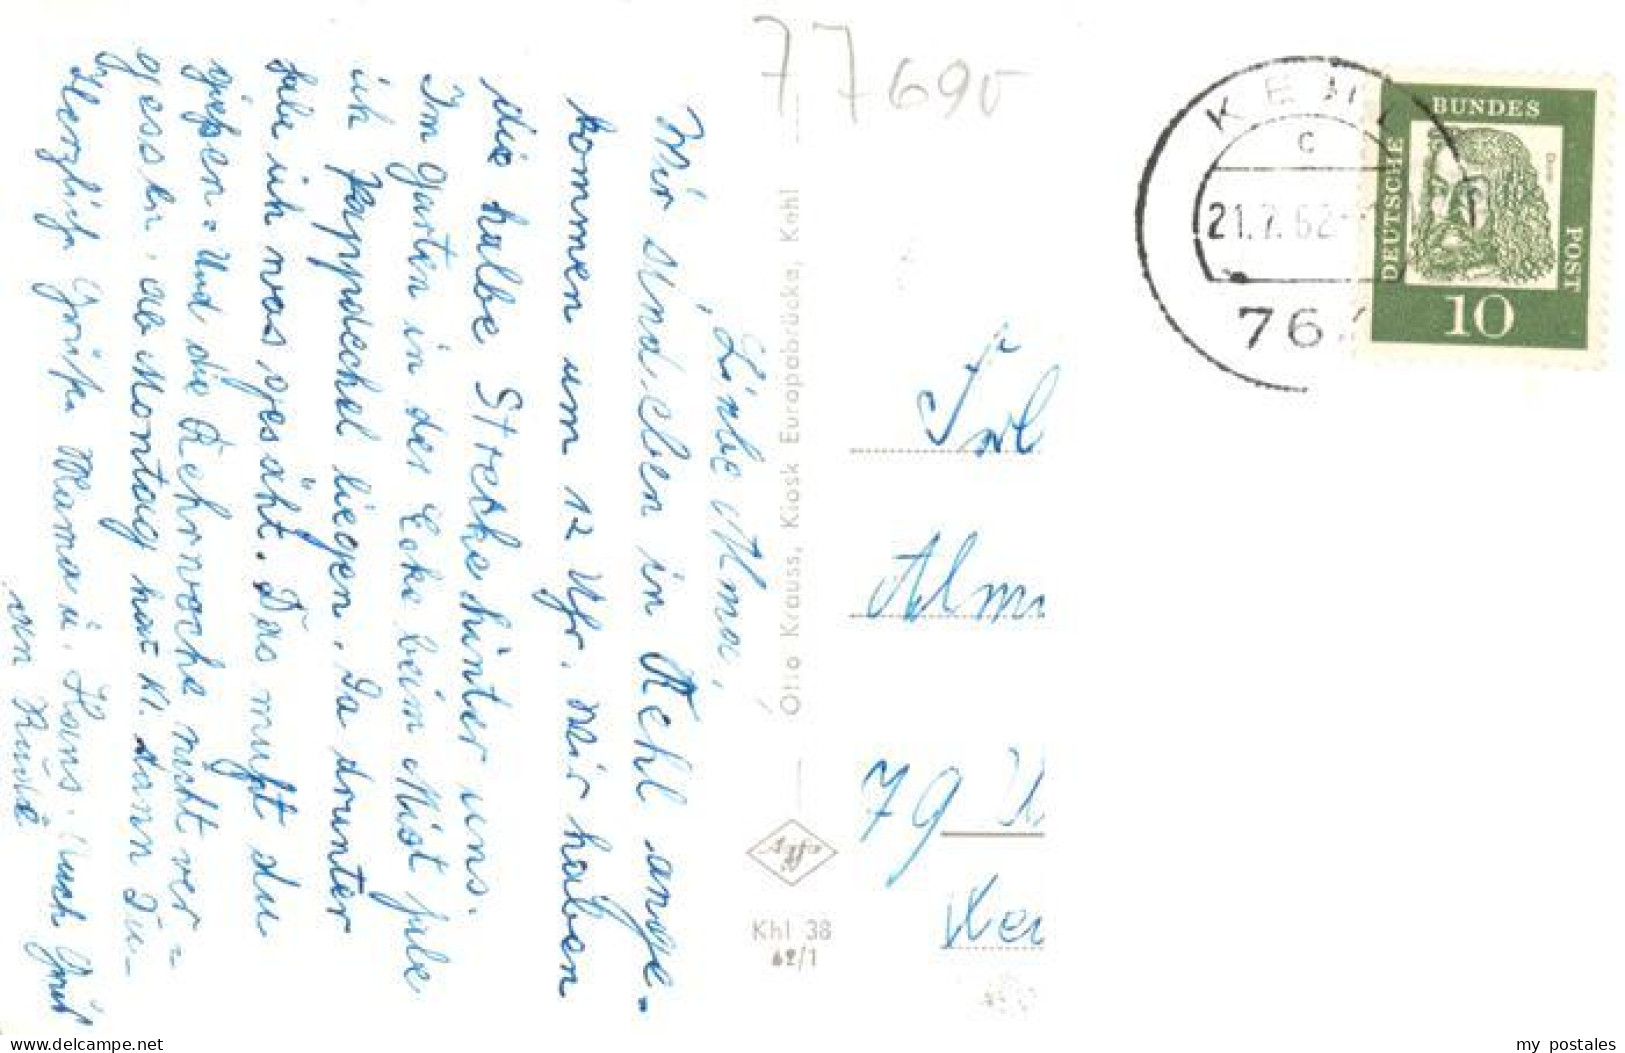 Liebe Alma,
Wir sind eben in Kehl ange-
kommen um 12 Uhr. Wir haben
die halbe Strecke hinter uns.
Im Garten in der Ecke beim Mist habe
ich Pappdeckel liegen. Da drunter
habe ich was gesäht. Das mußt du
gießen. Und die Kehrwoche nicht ver=
gessen, ab Montag hat Kl. dann Du-
Herzliche Grüße Mama u. Hans. Auch Gruß
von
Otto Krauss, Kiosk Europabrücke, Kehl
Khl 38
62/1
77690
KEHL
c
21.7.62
76
DEUTSCHE
BUNDES
POST
10
Alm
79
my postales
www.delcampe.net